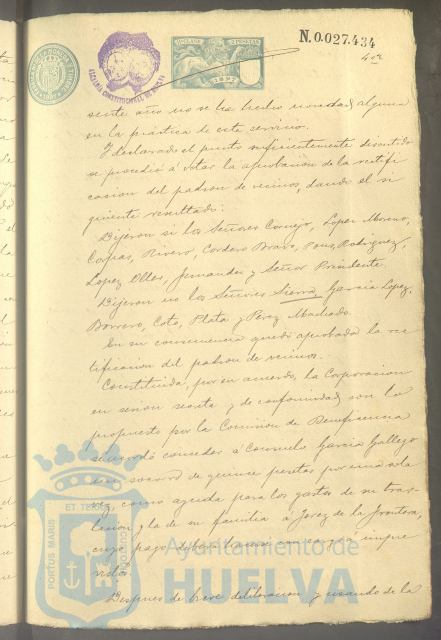 N.0.027.434
1897
sente año no se ha hecho novedad alguna
en la práctica de este servicio.
Y declarado el punto suficientemente discutido
se procedió á votar la aprobacion de la rectifi
cacion del padron de vecinos, dando el si
guiente resultado:
Dijeron si los Señores Cornejo, Lopez Moreno,
Rivero, Cordero Bravo, Pons, Rodriguez,
Lopez Fernandez y Señor Presidente.
Dijeron no los Señores Sierra, Garcia Lopez,
Borrero, Coto, Plata y Perez Machado.
En su consecuencia quedó aprobada la rec
tificacion del padron de vecinos.
Constituida, por su acuerdo, la Corporacion
en sesion secreta y de conformidad con lo
propuesto por la Comision de Beneficencia
acordó conceder á Consuelo Garcia Gallego
un socorro de quince pesetas por una sola
vez, como ayuda para los gastos de su tras-
lacion y la de su familia á Jerez de la frontera,
cuyo pago deberá hacerse con cargo á impre
vistos.
Despues de breve deliberacion y usando de la
PORTUS MARIS ET TERRE CUSTODIA
Ayuntamiento de
HUELVA